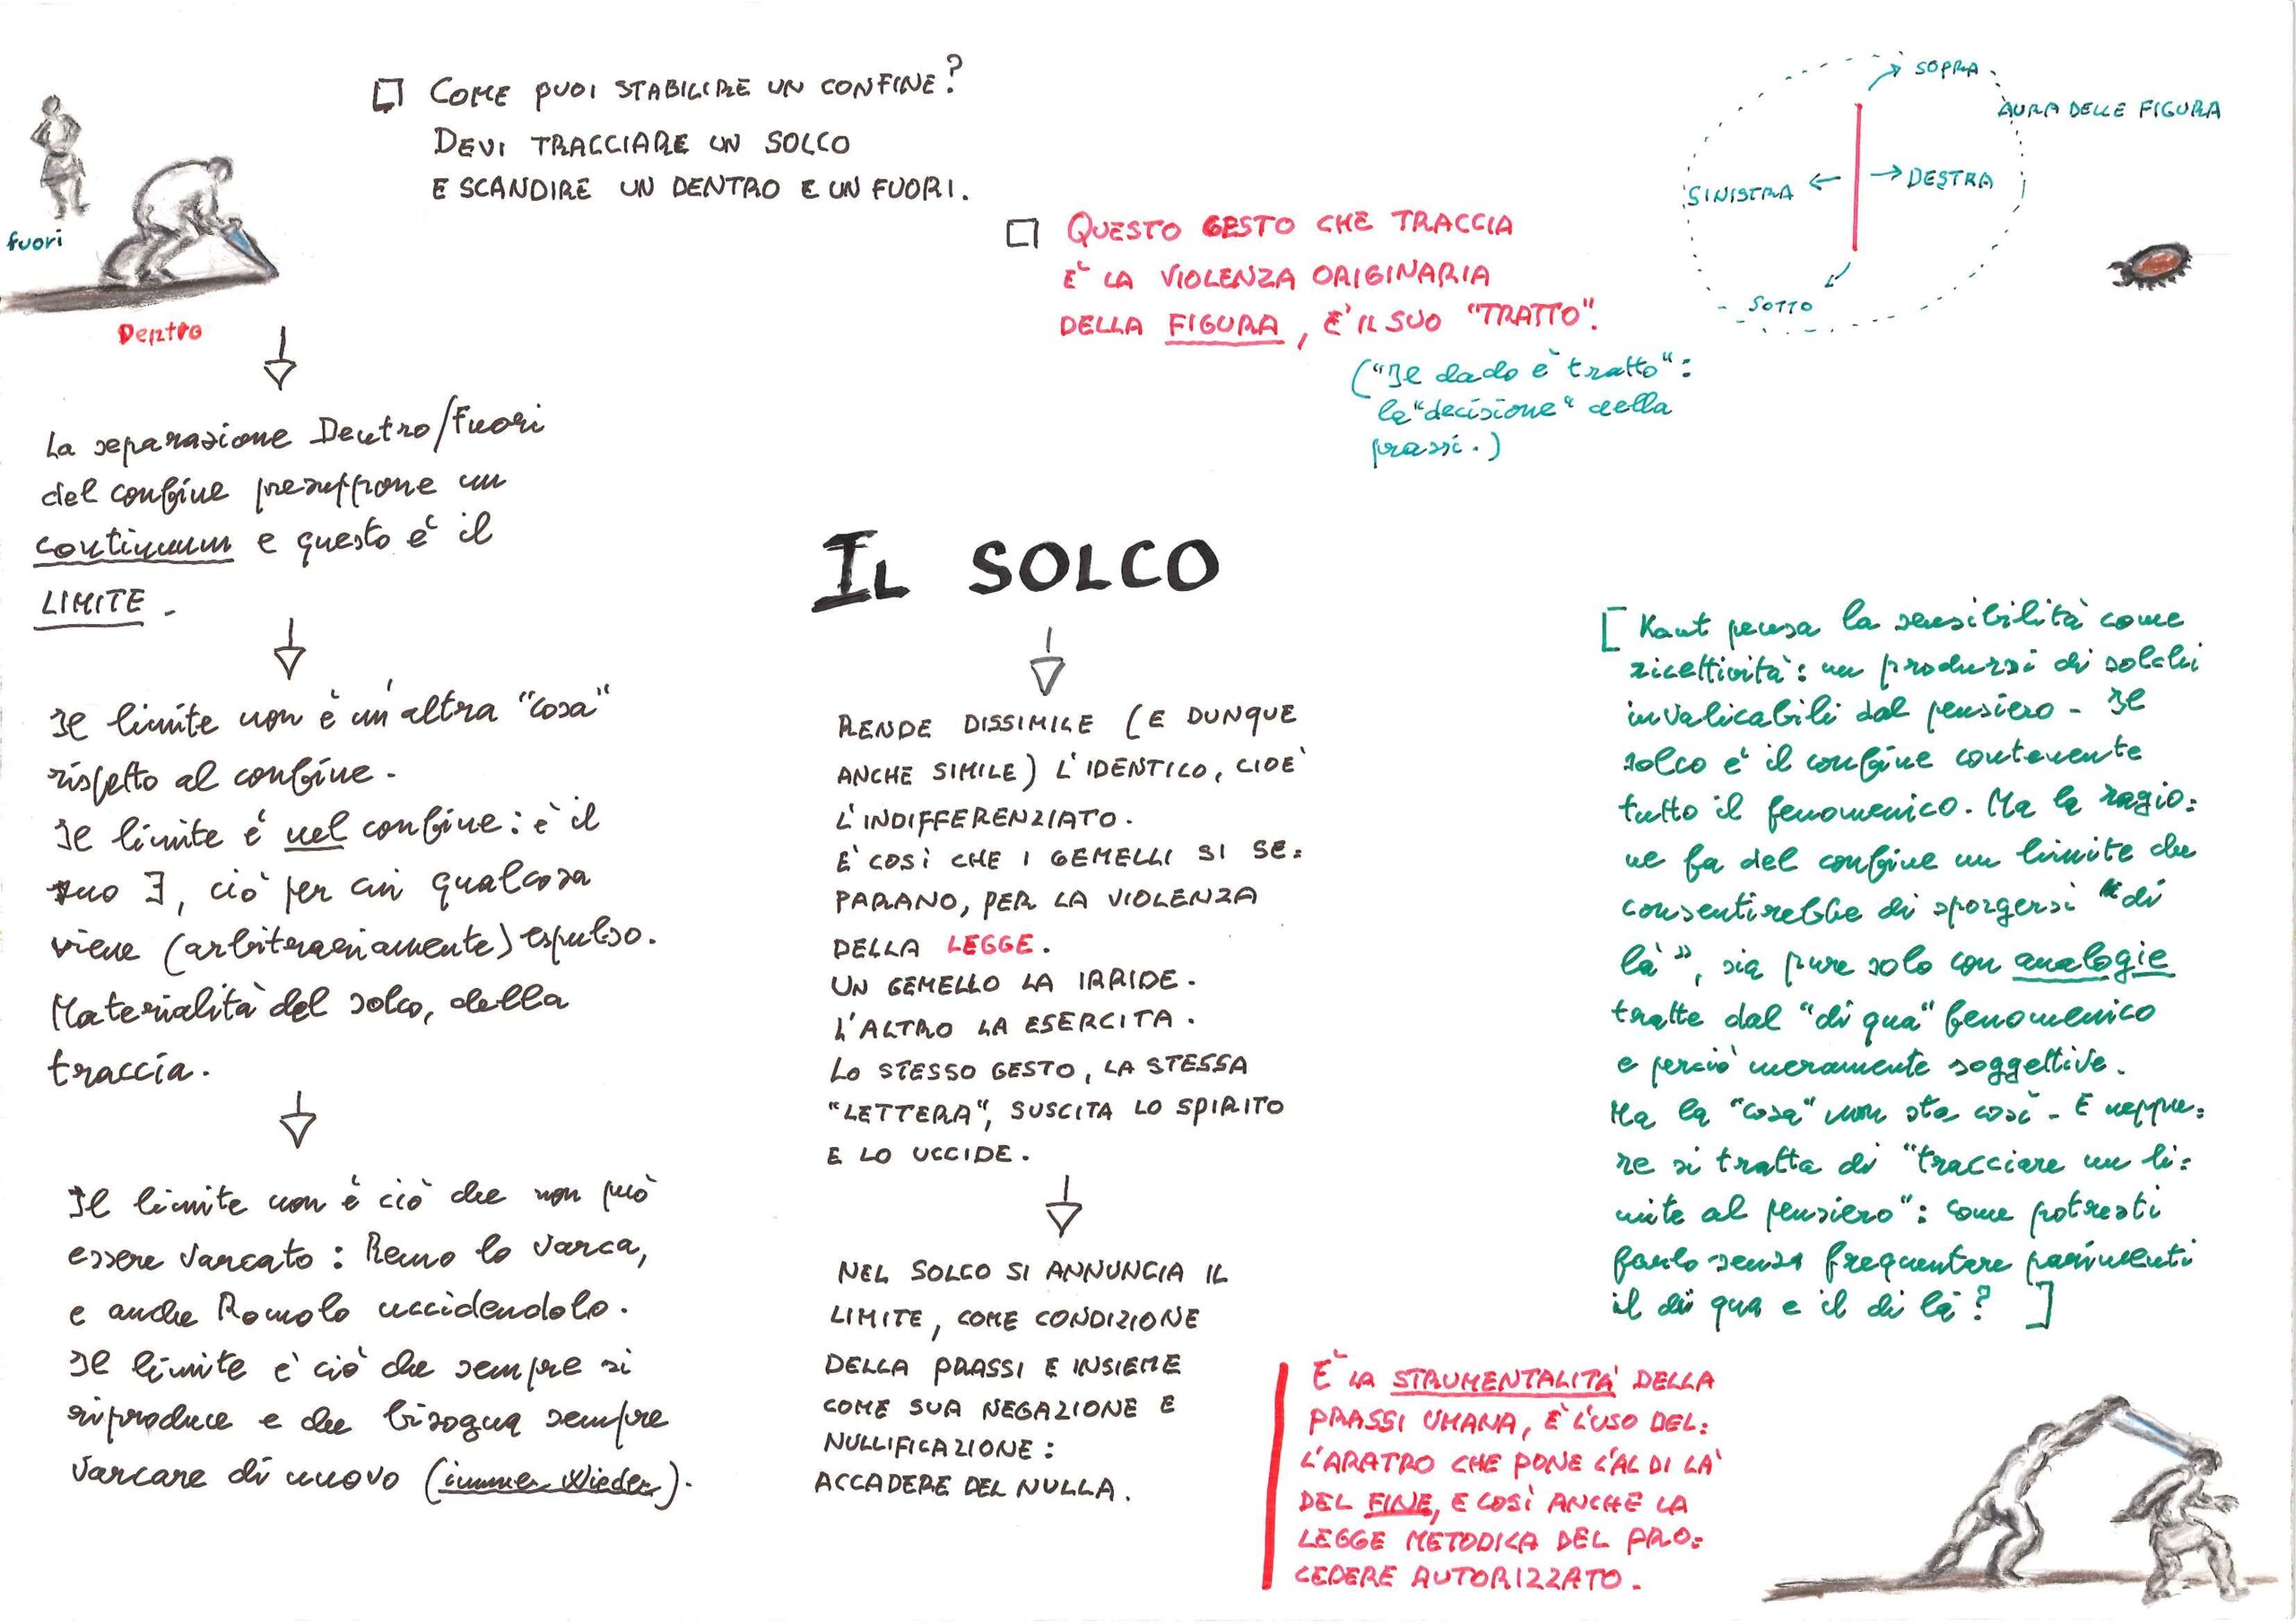 COME PUOI STABILIRE UN CONFINE?
DEVI TRACCIARE UN SOLCO
E SCANDIRE UN DENTRO E UN FUORI.
fuori
Dentro
QUESTO GESTO CHE TRACCIA
E' LA VIOLENZA ORIGINARIA
DELLA FIGURA, E' IL SUO "TRATTO".
("Il dado è tratto":
la "decisione" della
prassi.)
SOPRA
AURA DELLE FIGURA
SINISTRA
DESTRA
SOTTO
La separazione Dentro/Fuori
del confine presuppone un
continuum e questo è il
LIMITE.
Il limite non è un'altra "cosa"
rispetto al confine.
Il limite è nel confine: è il
suo ∃, ciò per cui qualcosa
viene (arbitrariamente) espulso.
Materialità del solco, della
traccia.
Il limite non è ciò che non può
essere varcato: Remo lo varca,
e anche Romolo uccidendolo.
Il limite è ciò che sempre si
riproduce e che bisogna sempre
varcare di nuovo (immer Wieder).
IL SOLCO
RENDE DISSIMILE (E DUNQUE
ANCHE SIMILE) L'IDENTICO, CIOE'
L'INDIFFERENZIATO.
E' COSÌ CHE I GEMELLI SI SE=
PARANO, PER LA VIOLENZA
DELLA LEGGE.
UN GEMELLO LA IRRIDE.
L'ALTRO LA ESERCITA.
LO STESSO GESTO, LA STESSA
"LETTERA", SUSCITA LO SPIRITO
E LO UCCIDE.
NEL SOLCO SI ANNUNCIA IL
LIMITE, COME CONDIZIONE
DELLA PRASSI E INSIEME
COME SUA NEGAZIONE E
NULLIFICAZIONE:
ACCADERE DEL NULLA.
[Kant pensa la sensibilità come
ricettività: un prodursi di solchi
invalicabili dal pensiero - Il
solco è il confine contenente
tutto il fenomenico. Ma la ragio=
ne fa del confine un limite che
consentirebbe di sporgersi "di
là", sia pure solo con analogie
tratte dal "di qua" fenomenico
e perciò meramente soggettive.
Ma la "cosa" non sta così - E neppu=
re si tratta di "tracciare un li=
mite al pensiero": come potresti
farlo senza frequentare parimenti
il di qua e il di là?]
E' LA STRUMENTALITA' DELLA
PRASSI UMANA, E' L'USO DEL=
L'ARATRO CHE PONE L'AL DI LA'
DEL FINE, E COSÌ ANCHE LA
LEGGE METODICA DEL PRO=
CEDERE AUTORIZZATO.